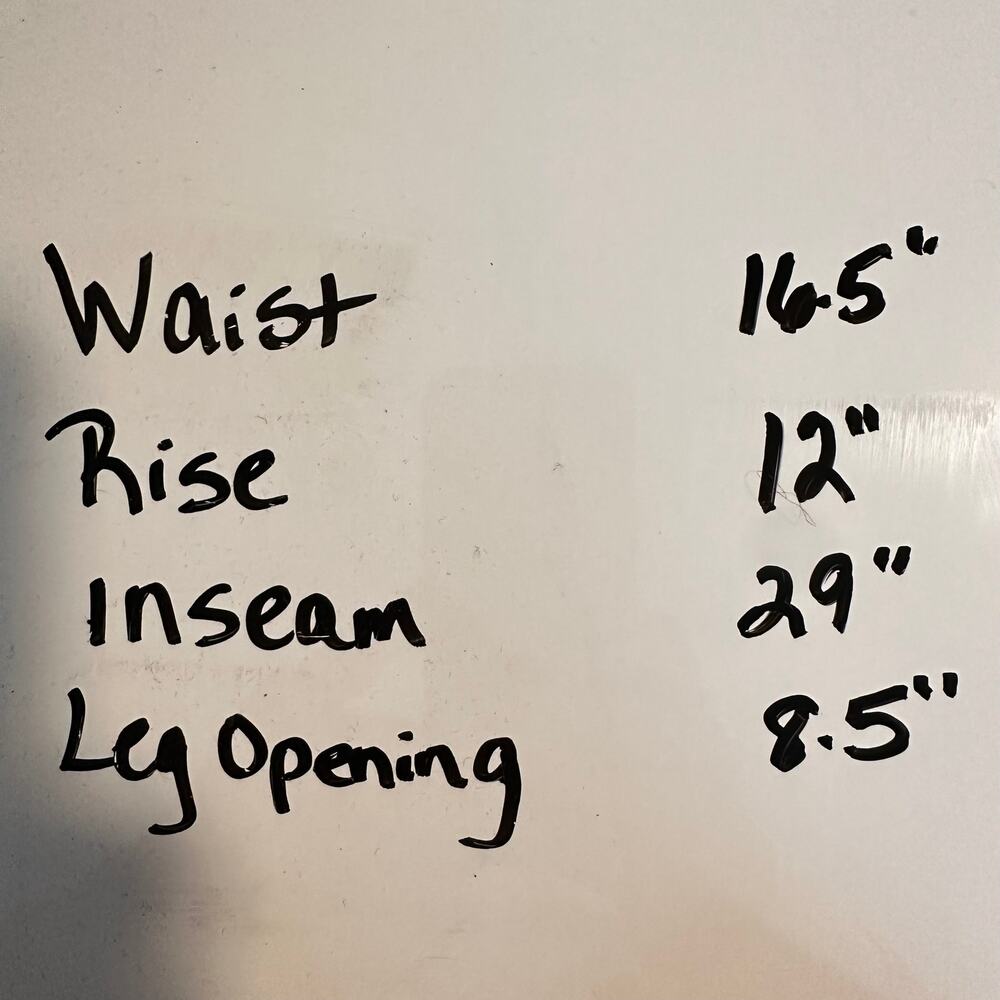 Waist 16.5"
Rise 12"
Inseam 29"
Leg Opening 8.5"